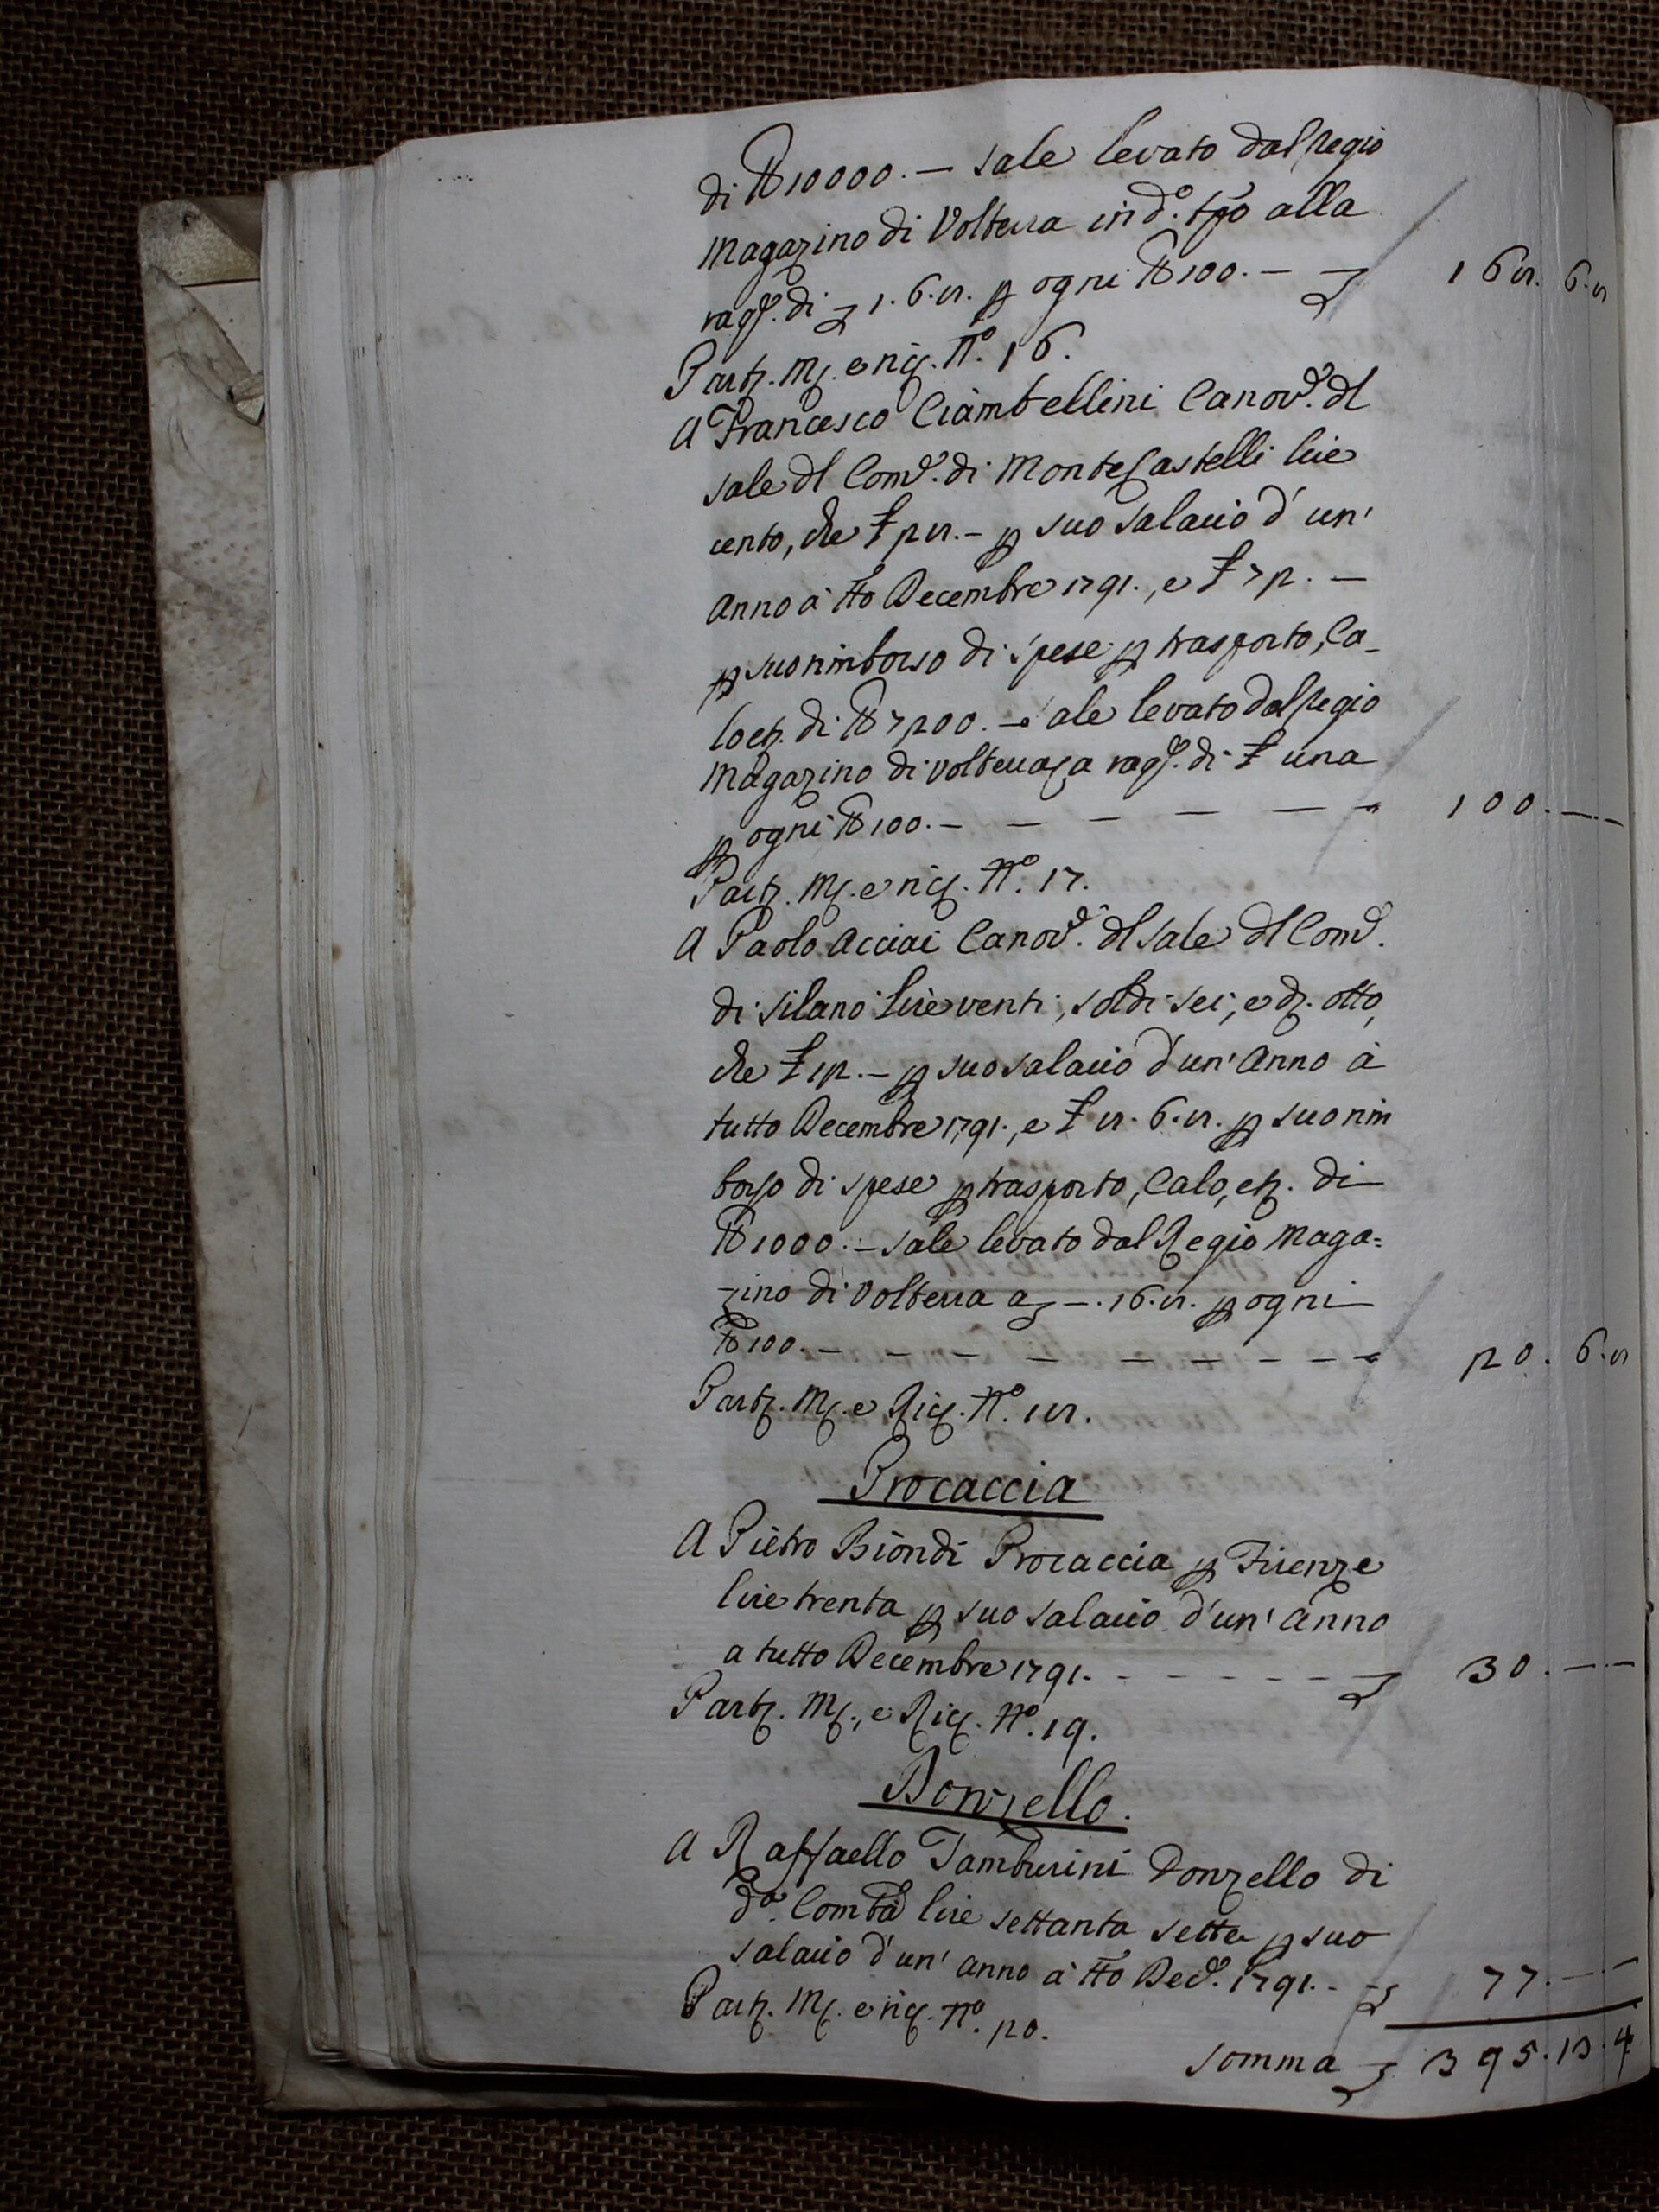 di ℔ 10000. — sale levato dal Regio
Magazino di Volterra in d.º tpo alla
rag.e di £ 1. 6. 8. p ogni ℔ 100. —
168. 6. 8
Partz. Mz. e ricz. Nº. 16.
A Francesco Ciambellini Canov.e dl
sale dl Com.e di MonteCastelli lire
cento, che £ 28. — p suo salario d'un'
Anno à tto Decembre 1791., e £ 72. —
p suo rimborso di spese p trasporto, Ca-
lo etz. di ℔ 7200. — sale levato dal Regio
Magazino di Volterra, a rag.e di £ una
p ogni ℔ 100. — — — — — —
100. — . —
Partz. Mz. e ricz. Nº. 17.
A Paolo Acciai Canov.e dl sale dl Com.e
di Silano lire venti, soldi sei, e dz. otto,
che £ 12. — p suo salario d'un' Anno à
tutto Decembre 1791., e £ 8. 6. 8. p suo rim
borso di spese p trasporto, Calo, etz. di
℔ 1000. — sale levato dal Regio Maga=
zino di Volterra a £ —. 16. 8. p ogni
℔ 100. — — — — — — — — —
20. 6. 8
Partz. Mz. e Ricz. Nº. 18.
Procaccia
A Pietro Biondi Procaccia p Firenze
lire trenta p suo salario d'un' Anno
a tutto Decembre 1791. - - - - - -
30. — . —
Partz. Mz., e Ricz. Nº. 19.
Donzello.
A Raffaello Tamburini Donzello di
d.ª Comtà lire settanta sette p suo
salario d'un' anno à tto Dec.e 1791. - -
77. — . —
Partz. Mz. e ricz. Nº. 20.
Somma £ 395. 13. 4